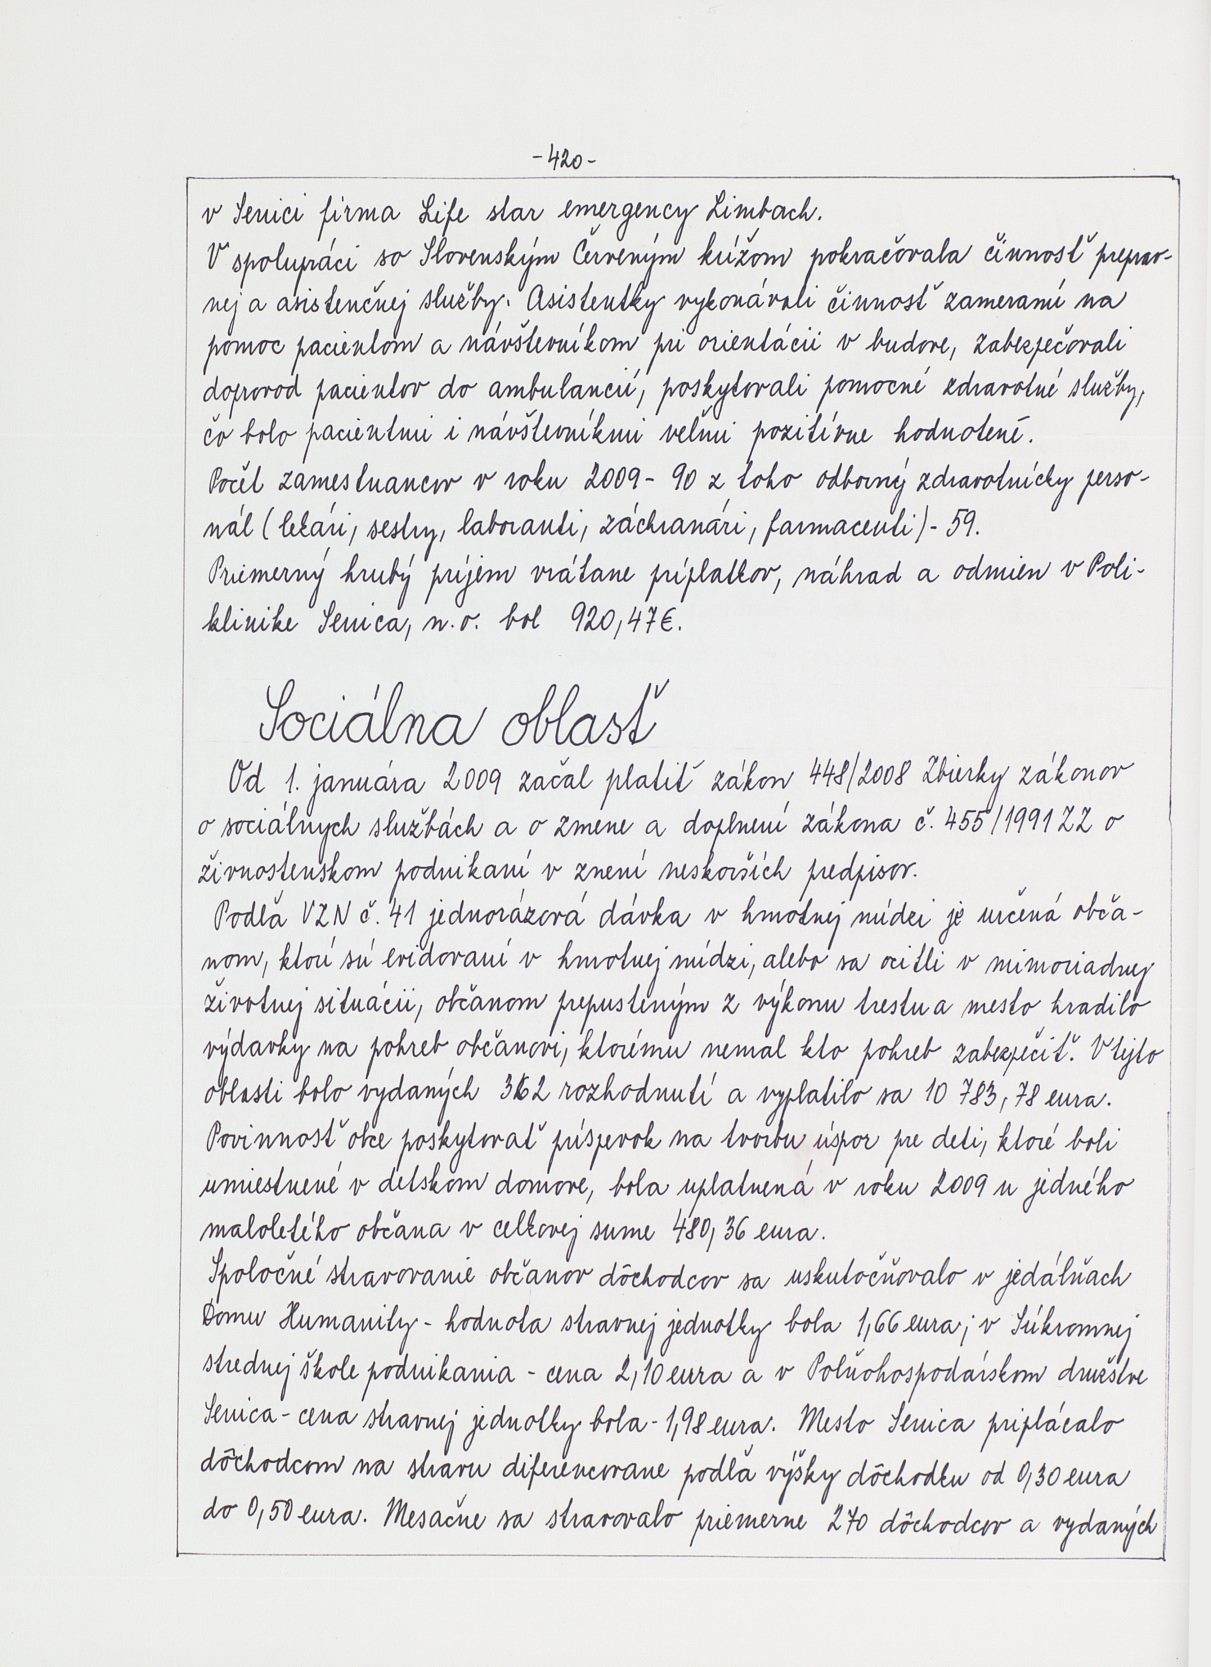 -420-
v Senici firma Life star emergency Limbach.
V spolupráci so Slovenským Červeným krížom pokračovala činnosť preprav-
nej a asistenčnej služby. Asistentky vykonávali činnosť zameranú na
pomoc pacientom a návštevníkom pri orientácii v budove, zabezpečovali
doprovod pacientov do ambulancií, poskytovali pomocné zdravotné služby,
čo bolo pacientmi i návštevníkmi veľmi pozitívne hodnotené.
Počet zamestnancov v roku 2009 - 90 z toho odborný zdravotnícky perso-
nál (lekári, sestry, laboranti, záchranári, farmaceuti) - 59.
Priemerný hrubý príjem vrátane príplatkov, náhrad a odmien v Poli-
klinike Senica, n.o. bol 920,47€.
Sociálna oblasť
Od 1. januára 2009 začal platiť zákon 448/2008 Zbierky zákonov
o sociálnych službách a o zmene a doplnení zákona č. 455/1991 ZZ o
živnostenskom podnikaní v znení neskorších predpisov.
Podľa VZN č. 41 jednorázová dávka v hmotnej núdzi je určená obča-
nom, ktorí sú evidovaní v hmotnej núdzi, alebo sa ocitli v mimoriadnej
životnej situácii, občanom prepusteným z výkonu trestu a mesto hradilo
výdavky na pohreb občanovi, ktorému nemal kto pohreb zabezpečiť. V tejto
oblasti bolo vydaných 362 rozhodnutí a vyplatilo sa 10 783,78 eura.
Povinnosť obce poskytovať príspevok na tvorbu úspor pre deti, ktoré boli
umiestnené v detskom domove, bola uplatnená v roku 2009 u jedného
maloletého občana v celkovej sume 480,36 eura.
Spoločné stravovanie občanov dôchodcov sa uskutočňovalo v jedálňach
Domu Humanity - hodnota stravnej jednotky bola 1,66 eura; v Súkromnej
strednej škole podnikania - cena 2,10 eura a v Poľnohospodárskom družstve
Senica - cena stravnej jednotky bola - 1,98 eura. Mesto Senica priplácalo
dôchodcom na stravu diferencovane podľa výšky dôchodku od 0,30 eura
do 0,50 eura. Mesačne sa stravovalo priemerne 270 dôchodcov a vydaných